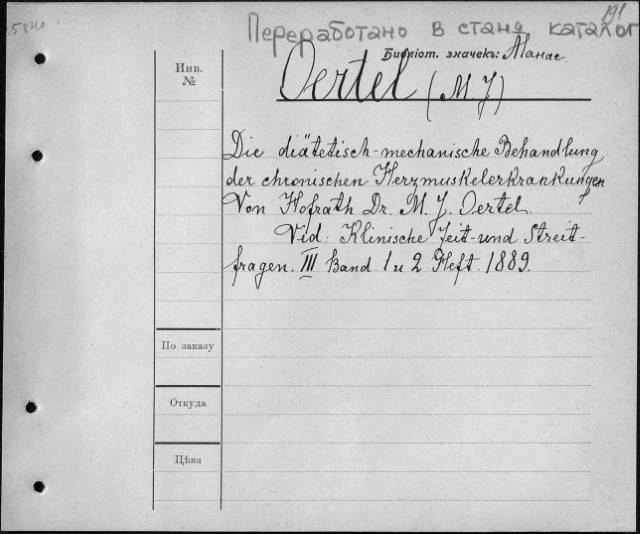 191
Переработано в станд. каталог
Библіот. значекъ:
Инв.
№
Oertel (M. J)
Die diätetisch-mechanische Behandlung
der chronischen Herzmuskelerkrankungen
Von Hofrath Dr. M. J. Oertel.
Vid: Klinische Zeit- und Streit-
fragen. III Band. 1 u 2 Heft. 1889.
По заказу
Откуда
Цѣна